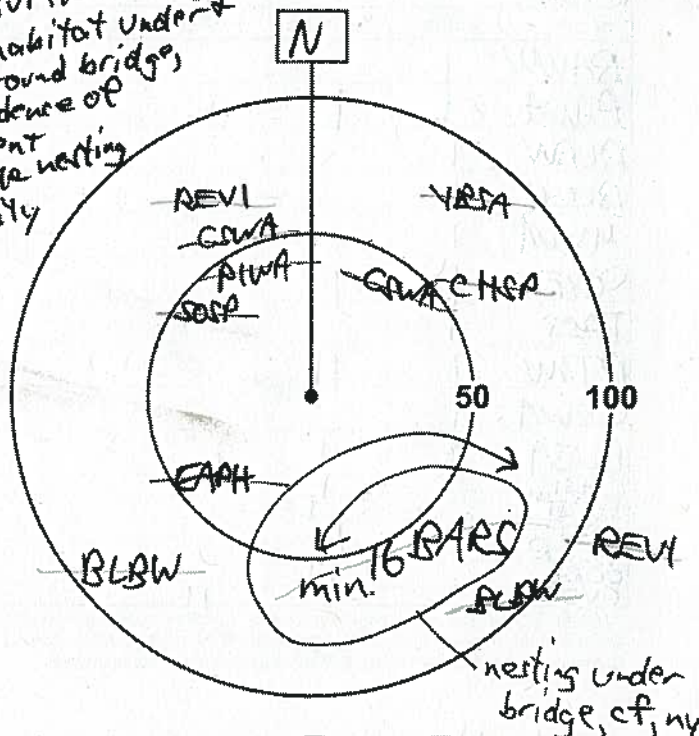 habitat under &
round bridge,
dence of
nesting
N
REVI
YBSA
CSWA
PIWA
CSWA CHSP
SOSP
50
100
EAPH
min. 16 BARS
REVI
BLBW
BLBW
nesting under
bridge, cf, ny